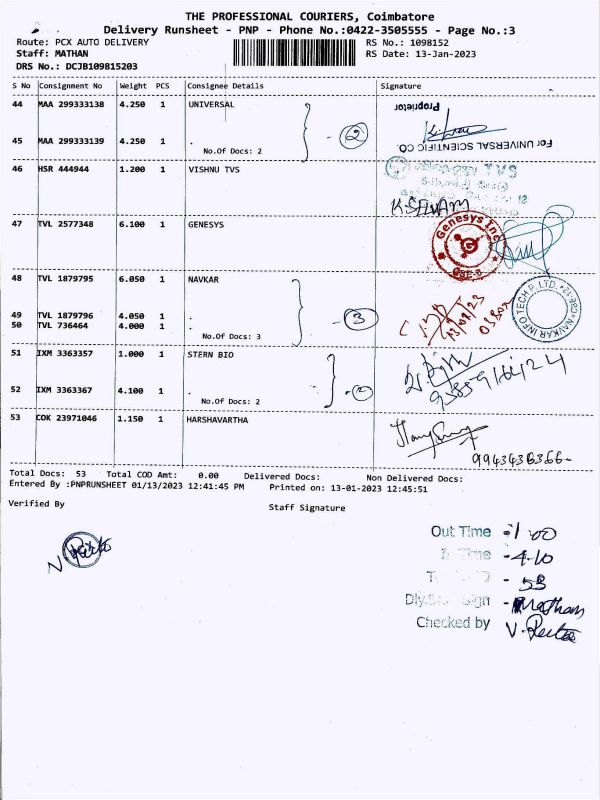 THE PROFESSIONAL COURIERS, Coimbatore
Delivery Runsheet - PNP - Phone No.:0422-3505555 - Page No.:3
Route: PCX AUTO DELIVERY RS No.: 1098152
Staff: MATHAN RS Date: 13-Jan-2023
DRS No.: DCJB109815203
S No Consignment No Weight PCS Consignee Details Signature
44 MAA 299333138 4.250 1 UNIVERSAL
Proprietor
45 MAA 299333139 4.250 1 . 2
For UNIVERSAL SCIENTIFIC CO.
No.Of Docs: 2
46 HSR 444944 1.200 1 VISHNU TVS
TVS
K.SELVAM
47 TVL 2577348 6.100 1 GENESYS
Genesys Inc
CBE-6
48 TVL 1879795 6.050 1 NAVKAR
NAVKAR INFO TECH P. LTD. CBE-12
49 TVL 1879796 4.050 1 . 3
50 TVL 736464 4.000 1 No.Of Docs: 3
51 IXM 3363357 1.000 1 STERN BIO
52 IXM 3363367 4.100 1 . 2
No.Of Docs: 2
53 COK 23971046 1.150 1 HARSHAVARTHA
9943436366-
Total Docs: 53 Total COD Amt: 0.00 Delivered Docs: Non Delivered Docs:
Entered By :PNPRUNSHEET 01/13/2023 12:41:45 PM Printed on: 13-01-2023 12:45:51
Verified By Staff Signature
Out Time -1.00
In Time -4.10
- 53
Sign - Mathan
Checked by